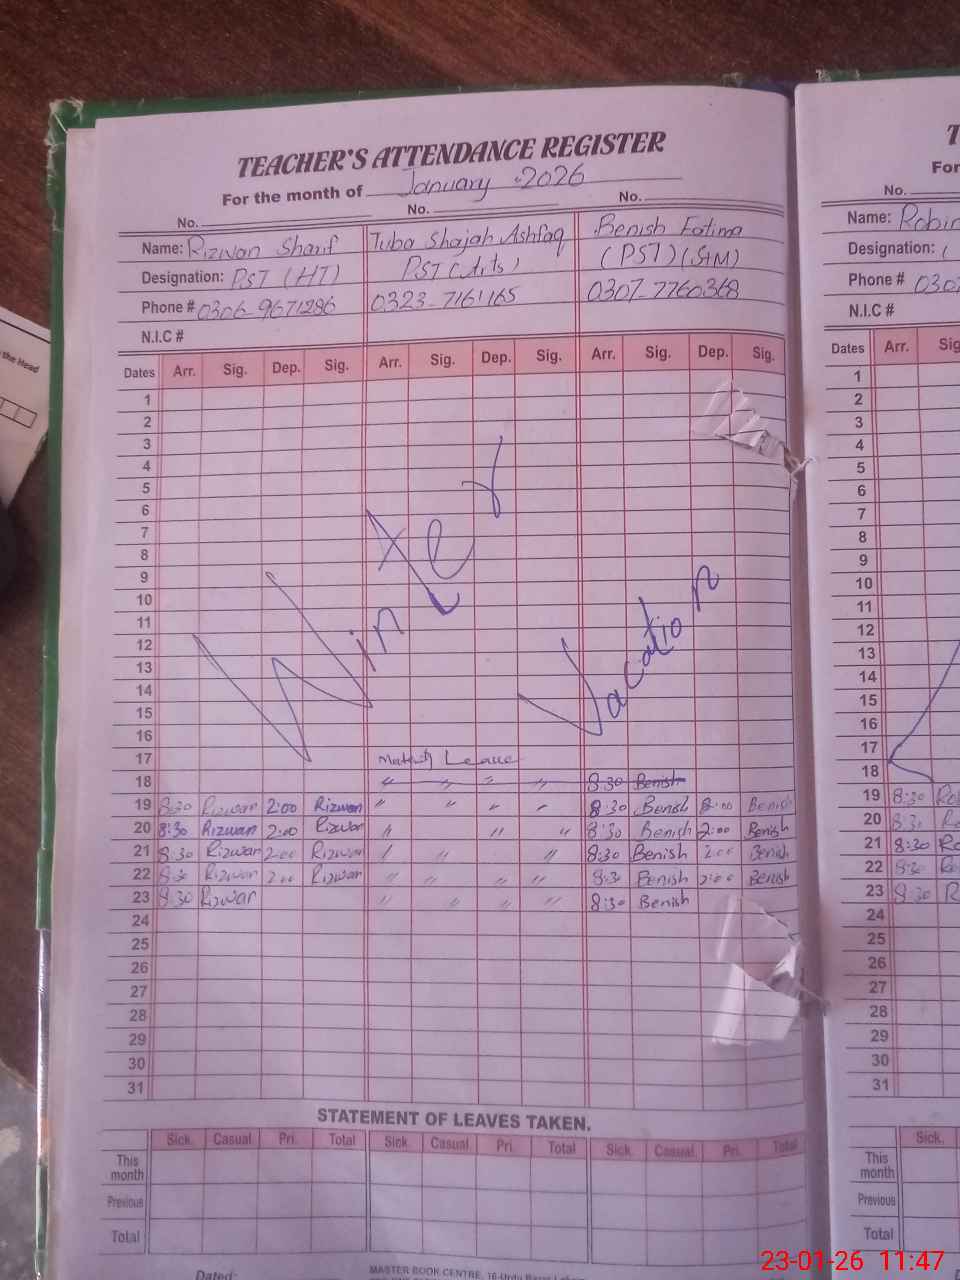 TEACHER'S ATTENDANCE REGISTER
For the month of January 2026
No. No. No.
Name: Rizwan Sharif Tuba Shajah Ashfaq Benish Fatima
Designation: PST (HT) PST (Arts) (PST) (S+M)
Phone # 0306-9671286 0323-7161165 0307-7760368
N.I.C #
Dates Arr. Sig. Dep. Sig. Arr. Sig. Dep. Sig. Arr. Sig. Dep. Sig.
1
2
3
4
5
6
7
8
9
10
11
12
13
14
15
16
Winter Vacation
17 Leave
18 " " " " 8:30 Benish
19 8:30 Rizwan 2:00 Rizwan " " " " 8:30 Benish 2:00 Benish
20 8:30 Rizwan 2:00 Rizwan " " " 8:30 Benish 2:00 Benish
21 8:30 Rizwan 2:00 Rizwan " " " 8:30 Benish 2:00 Benish
22 8:30 Rizwan 2:00 Rizwan " " " " 8:30 Benish 2:00 Benish
23 8:30 Rizwan " " " " 8:30 Benish
24
25
26
27
28
29
30
31
STATEMENT OF LEAVES TAKEN.
Sick. Casual. Pri. Total Sick. Casual. Pri. Total Sick. Casual. Pri. Total
This month
Previous
Total
Dated:
MASTER BOOK CENTRE, 16-Urdu Bazar
the Head
No.
Name:
Designation:
Phone #
N.I.C #
Dates Arr.
1
2
3
4
5
6
7
8
9
10
11
12
13
14
15
16
17
18
19 8:30
20 8:30
21 8:30
22 8:30
23 8:30
24
25
26
27
28
29
30
31
Sick.
This month
Previous
Total
23-01-26 11:47